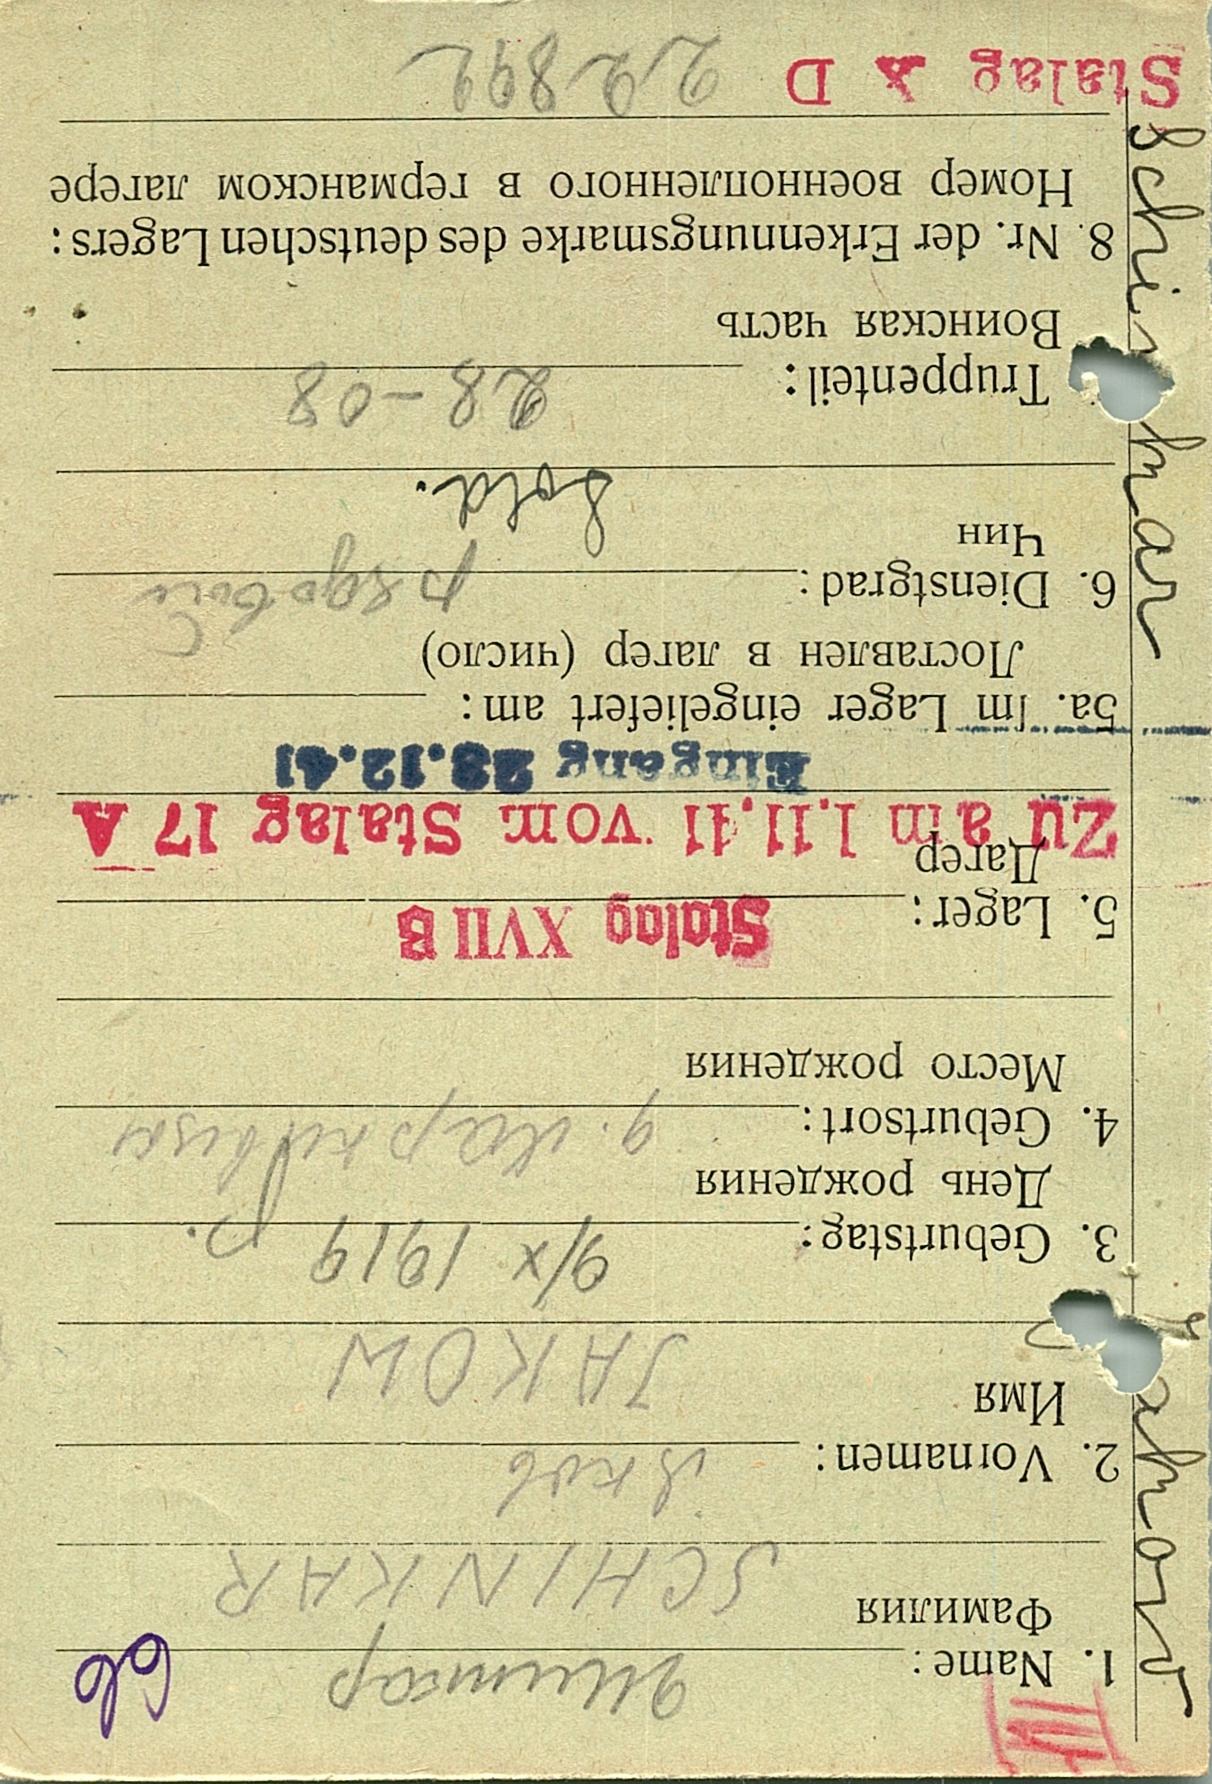 III
1. Name: Шинкар
66
Фамилия
SCHINKAR
2. Vornamen: Яков
Имя
JAKOW
3. Geburtstag: 9/X 1919 р.
День рождения
4. Geburtsort:
Место рождения
Stalag XVII B
5. Lager:
Лагер
Zu am 1.11.41 vom Stalag 17 A
Eingang 23.12.41
5a. Im Lager eingeliefert am:
Поставлен в лагер (число)
6. Dienstgrad: рядовой
Чин
Sold.
Truppenteil: 28-08
Воинская часть
8. Nr. der Erkennungsmarke des deutschen Lagers:
Номер военнопленного в германском лагере
Stalag X D 22892
Schinkar